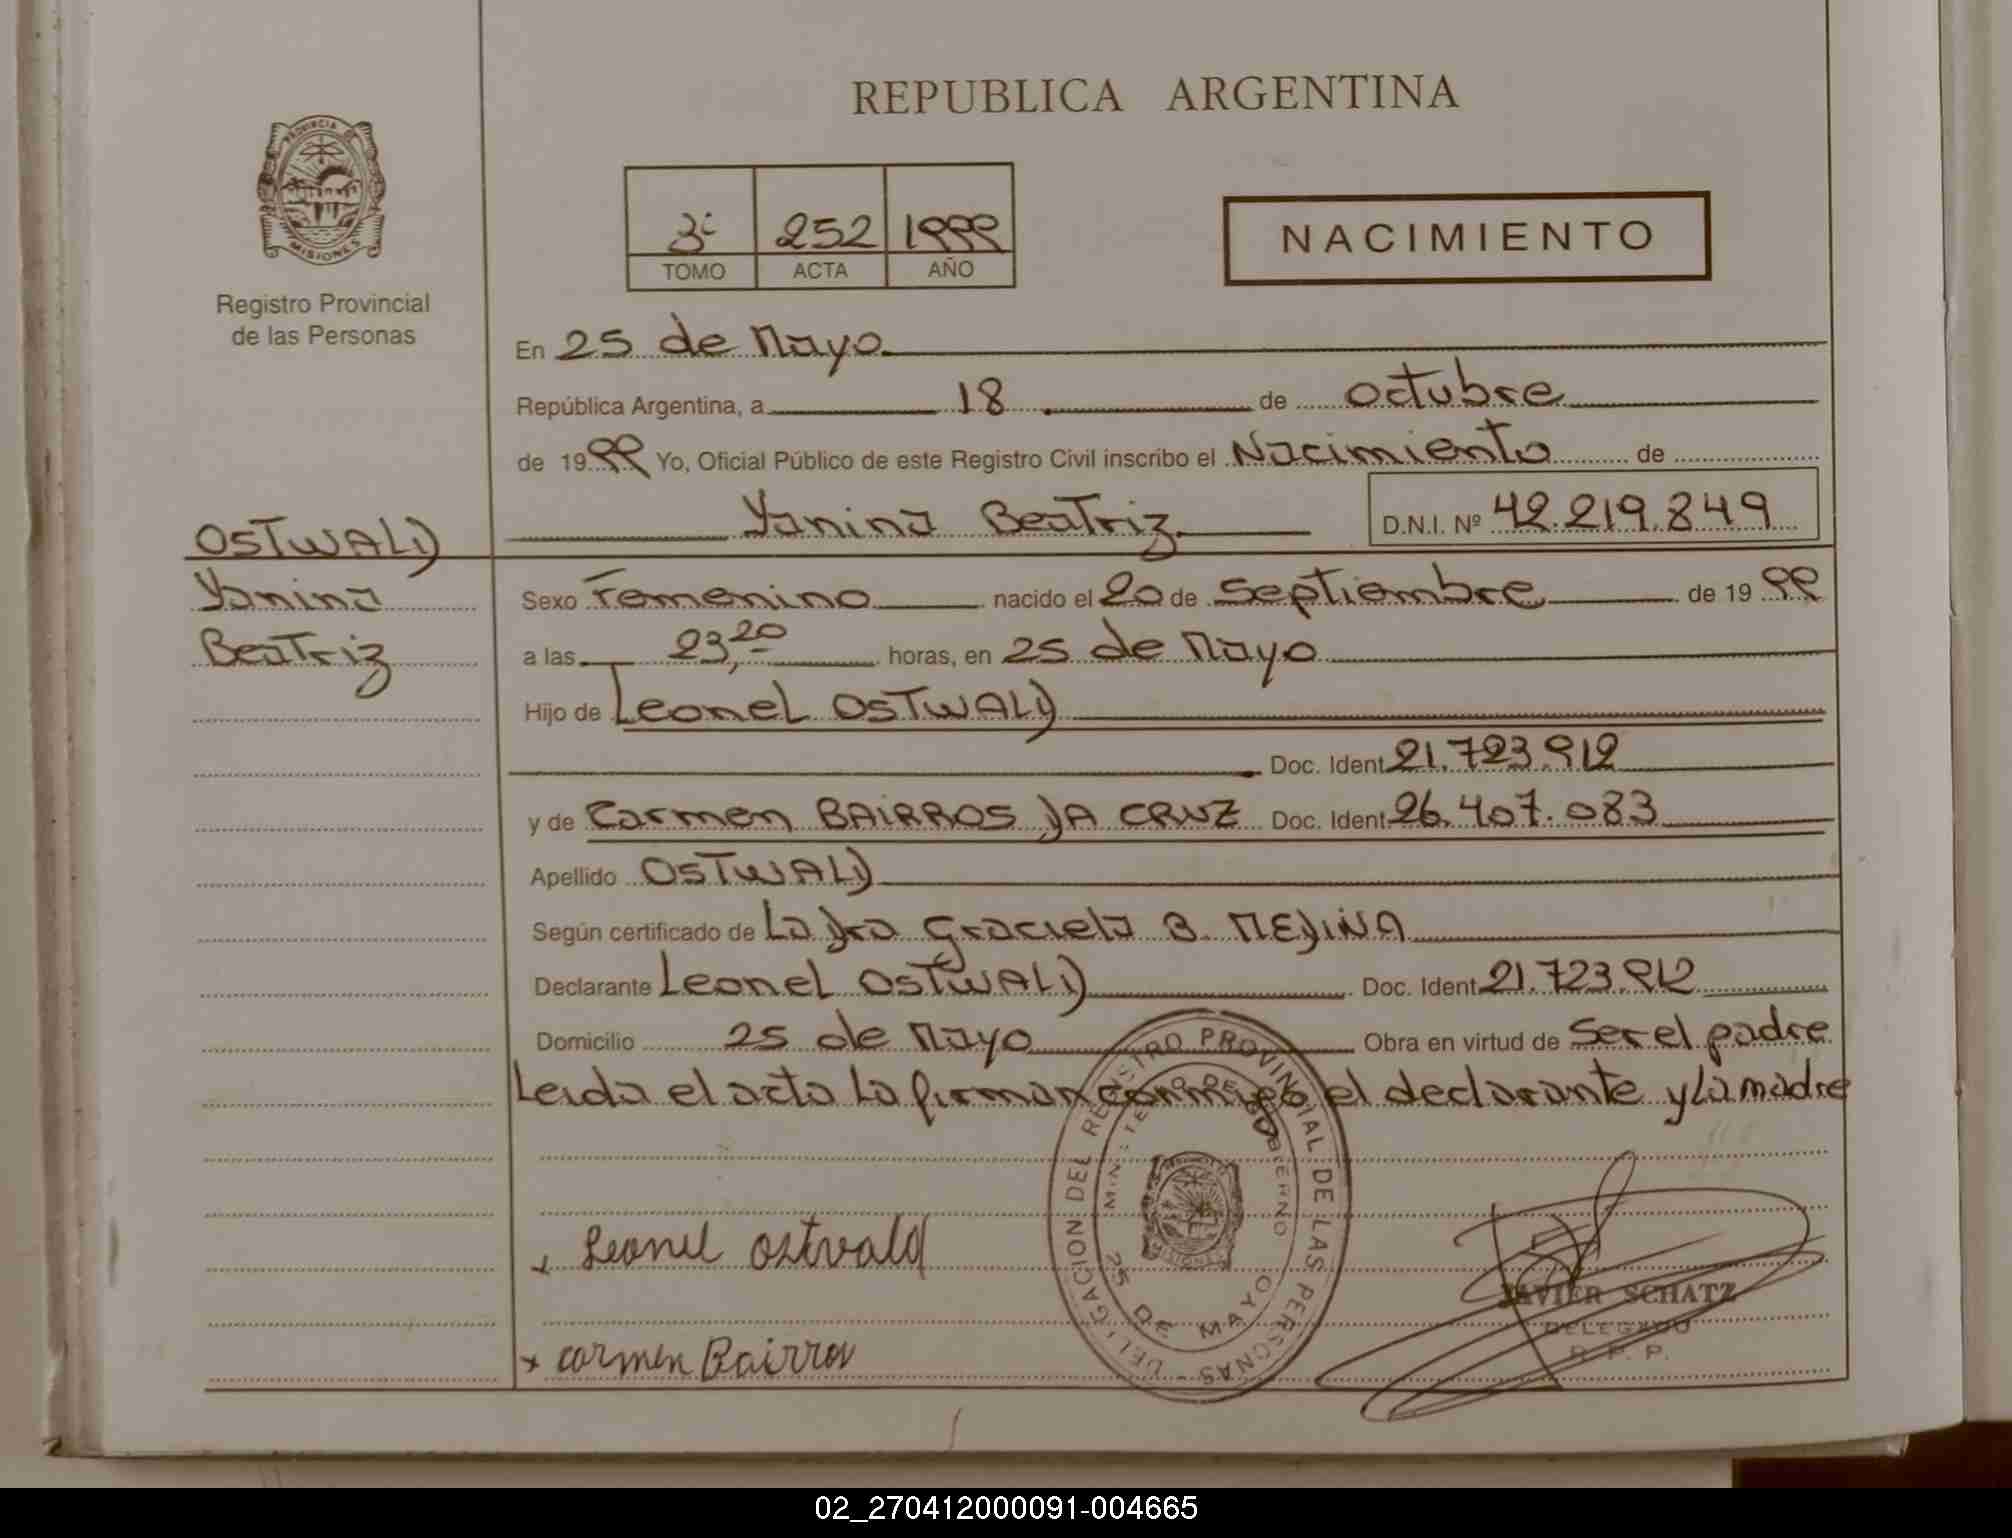 REPUBLICA ARGENTINA
PROVINCIA DE
MISIONES
Registro Provincial
de las Personas
3º 252 1999
TOMO ACTA AÑO
NACIMIENTO
En 25 de Mayo
República Argentina, a 18 de octubre
de 1999 Yo, Oficial Público de este Registro Civil inscribo el Nacimiento de
Yanina Beatriz D.N.I. Nº 42.219.849
OSTWALD
Yanina
Beatriz
Sexo Femenino nacido el 20 de Septiembre de 1999
a las 23,20 horas, en 25 de Mayo
Hijo de Leonel OSTWALD
Doc. Ident 21.723.912
y de Carmen BAIRROS DA CRUZ Doc. Ident 26.407.083
Apellido OSTWALD
Según certificado de La Dra Graciela B. MEDINA
Declarante Leonel OSTWALD Doc. Ident 21.723.912
Domicilio 25 de Mayo Obra en virtud de Ser el padre
Leida el acta la firman conmigo el declarante y la madre
DELEGACION DEL REGISTRO PROVINCIAL DE LAS PERSONAS
MINISTERIO DE GOBIERNO
25 DE MAYO
MISIONES
x Leonel Ostwald
JAVIER SCHATZ
DELEGADO
R. P. P.
x carmen Bairros
02_270412000091-004665